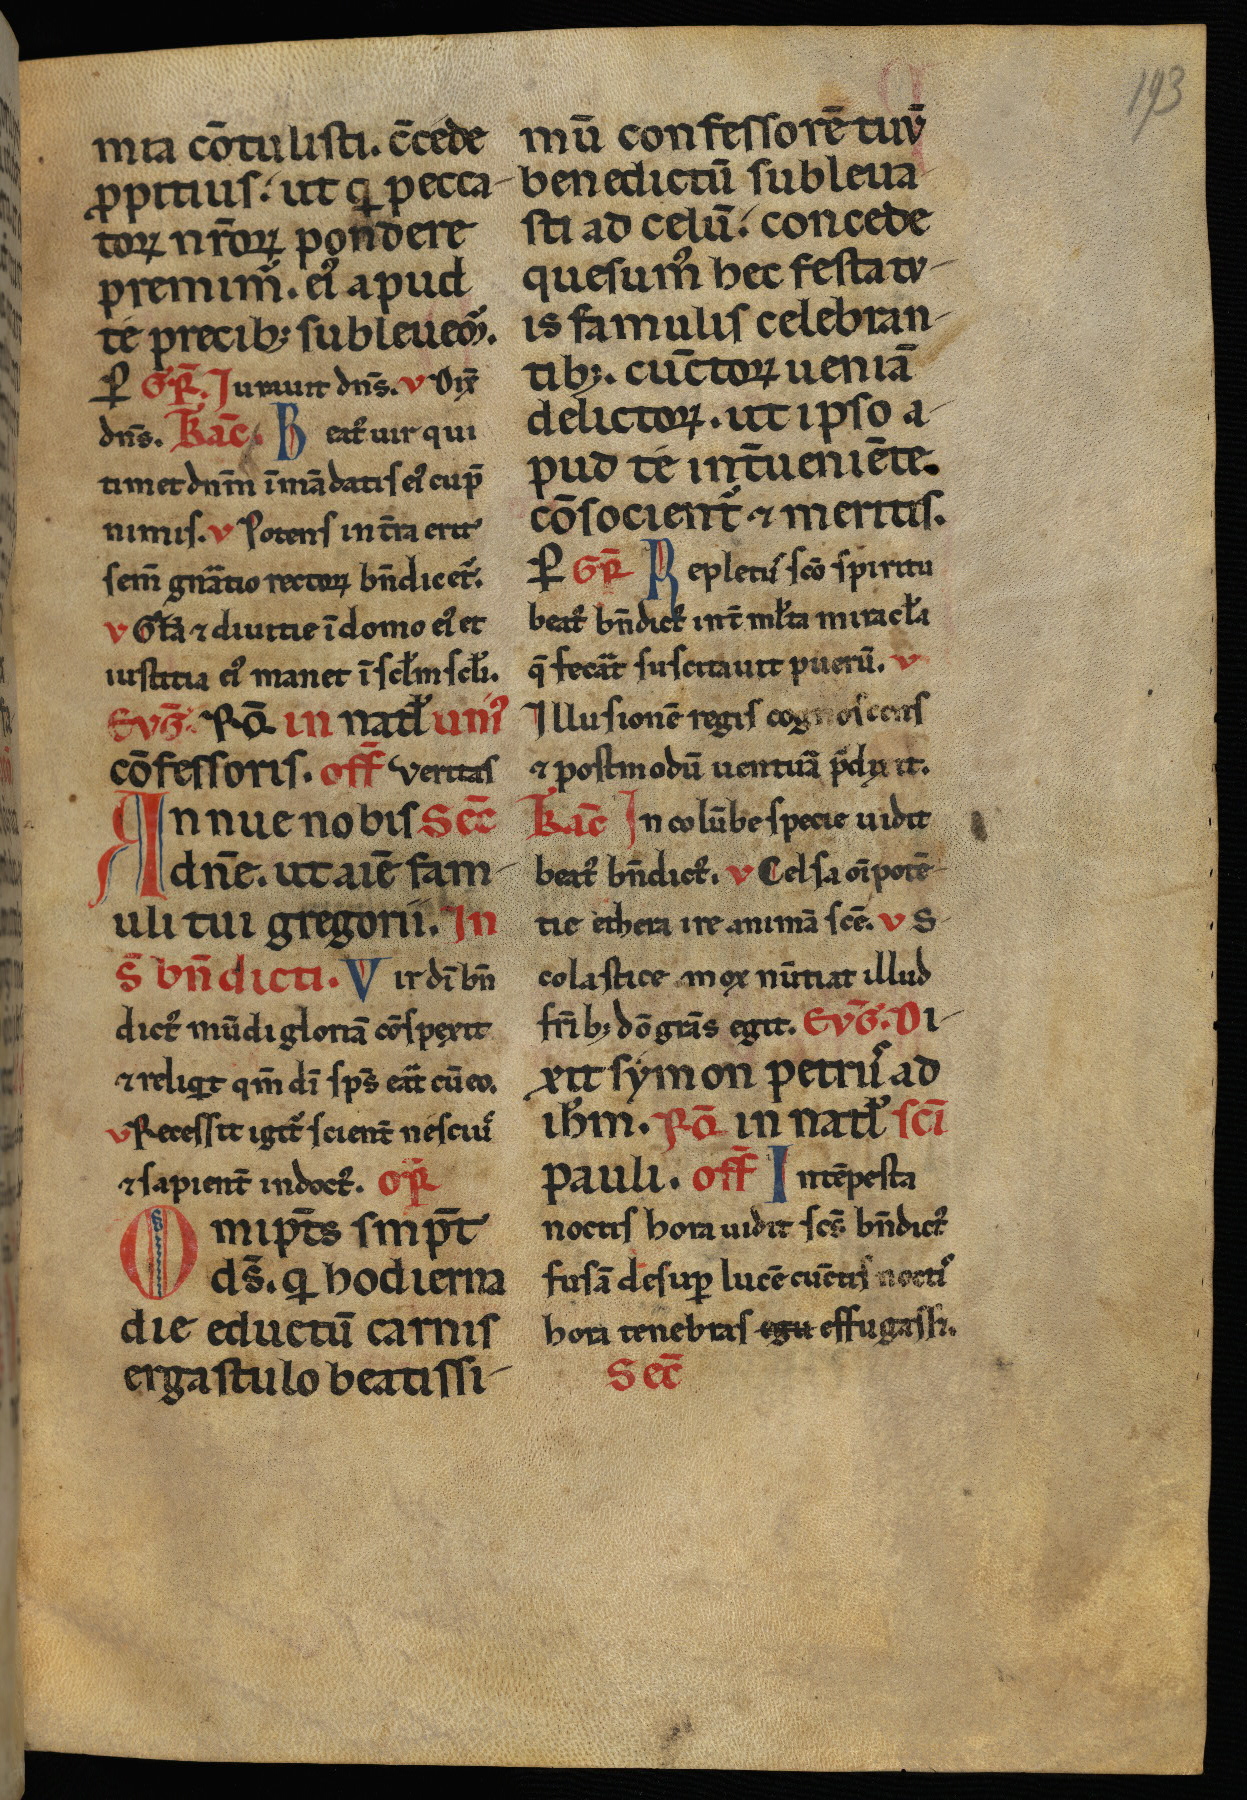 193
mia cōtulisti. c̄cede
ꝓpitius. ut q̲ pecca-
toꝝ nr̄oꝝ pondere
premim᷒. ei᷒ apud
te precib; subleuem᷒.
P̲ GR̄. Iurauit dn̄s. v Dix̄
dn̄s. Kac̄. Beat᷒ uir qui
timet dn̄m ī mādatis ei᷒ cup̄
nimis. v Potens in t̄ra erit
sem̄ gn̄atio rectoꝝ bn̄dicet᷒.
v Gl̄a ⁊ diuitie ī domo ei᷒ et
iustitia ei᷒ manet ī sc̄lm sc̄li.
EVḠ. R̄Q in natł uni᷒
cōfessoris. off̄ Veritas
Annue nobis Sec̄
dn̄e. ut aīe fam-
uli tui gregorii. In
S̄ bn̄dicti. Vir dī bn̄
dict᷒ mūdi gloriā cōspexit
⁊ reliqit qm̄ dī sp̄s eāt cū eo.
v Recessit igit᷒ scient̄ nesciu᷒
⁊ sapient̄ indoct᷒. oR̄
Omip̄ts smp̄t
ds̄. q̲ hodierna
die eductū carnis
ergastulo beatissi-
mū confessorē tuū
benedictū subleua
sti ad celū. concede
quesum᷒ hec festa tu-
is famulis celebran-
tib;. cūctoꝝ ueniā
delictoꝝ. ut ipso a-
pud te int̄ueniēte.
cōsocient᷒ ⁊ meritis.
P̲ GR̄ Repletu᷒ sc̄o spiritu
beat᷒ bn̄dict᷒ int̄ mł̄ta miracł̄a
q̄ fecāt suscitauit puerū. v
Illusionē regis cognoscens
⁊ postmodū uentuā p̄dixit.
Kac̄ In colūbe specie uidit
beat᷒ bn̄dict᷒. v Celsa oīpotē-
tie ethera ire animā sc̄e. v S
colastice mox nūtiat illud
fr̄ib; dō grās egit. EVḠ. Di-
xit symon petru᷒ ad
ih̄m. R̄Q in natł sc̄i
pauli. off̄ Intēpesta
noctis hora uidit sc̄s bn̄dict᷒
fusā desup̲ lucē cūctis nocti᷒
hora tenebras egit effugassi.
Sec̄